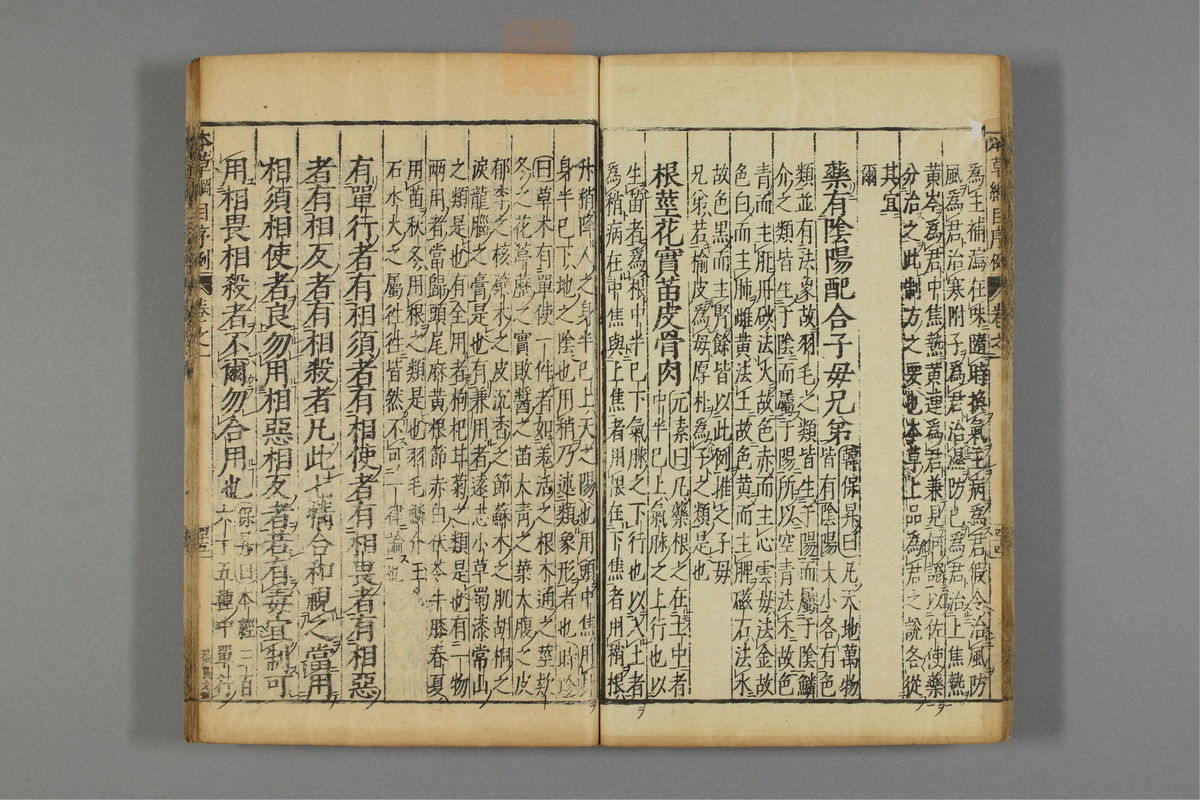 本草綱目序例 卷之一
爲主補瀉在味隨時換氣主病爲君假令治風防
風爲君治寒附子爲君治濕防己爲君治上焦熱
黃芩爲君中焦熱黃連爲君兼見何證以佐使藥
分治之此制方之要也本草上品爲君之說各從
其宜
爾
藥有陰陽配合子母兄弟
韓保昇曰凡天地萬物
皆有陰陽大小各有色
類並有法象故羽毛之類皆生于陽而屬于陰鱗
介之類皆生于陰而屬于陽所以空青法木故色
青而主肝丹砂法火故色赤而主心雲母法金故
色白而主肺雌黃法土故色黃而主脾磁石法水
故色黑而主腎餘皆以此例推之子母
兄弟若榆皮爲母厚朴爲子之類是也
根莖花實苗皮骨肉
元素曰凡藥根之在土中者
中半已上氣脉之上行也以
生苗者爲根中半已下氣脉之下行也以入土者
爲稍病在中焦與上焦者用根在下焦者用稍根
升稍降人之身半已上天之陽也用頭中焦用身
身半已下地之陰也用稍乃述類象形者也時珍
曰草木有單使一件者如羌活之根木通之莖款
冬之花葶藶之實敗醬之苗大青之葉大腹之皮
郁李之核蘗木之皮沉香之節蘇木之肌胡桐之
淚龍腦之膏是也有兼用者遠志小草蜀漆常山
之類是也有全用者枸杞甘菊之類是也有一物
兩用者當歸頭尾麻黃根節赤白伏苓牛膝春夏
用苗秋冬用根之類是也羽毛鱗介玉
石水火之屬徃徃皆然不可一律論也
有單行者有相須者有相使者有相畏者有相惡
者有相反者有相殺者凡此七情合和視之當用
相須相使者良勿用相惡相反者若有毒宜制可
用相畏相殺者不爾勿合用也
保昇曰本經三百
六十五種中單行
本草綱目序例 卷之一